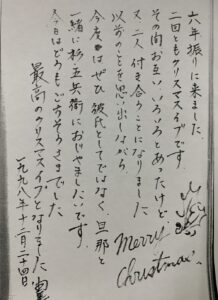 六年振りに来ました
二回ともクリスマスイブです
その間お互いいろいろとあったけど
又二人付き合うことになりました
以前のことを思い出しながら
今度はぜひ彼氏としてではなく旦那と
一緒に杉五兵衛におじゃましたいです。
今日はどうもごちそうさまでした
最高のクリスマスイブとなりました
一九九八年十二月二十四日
Merry
Christmas.